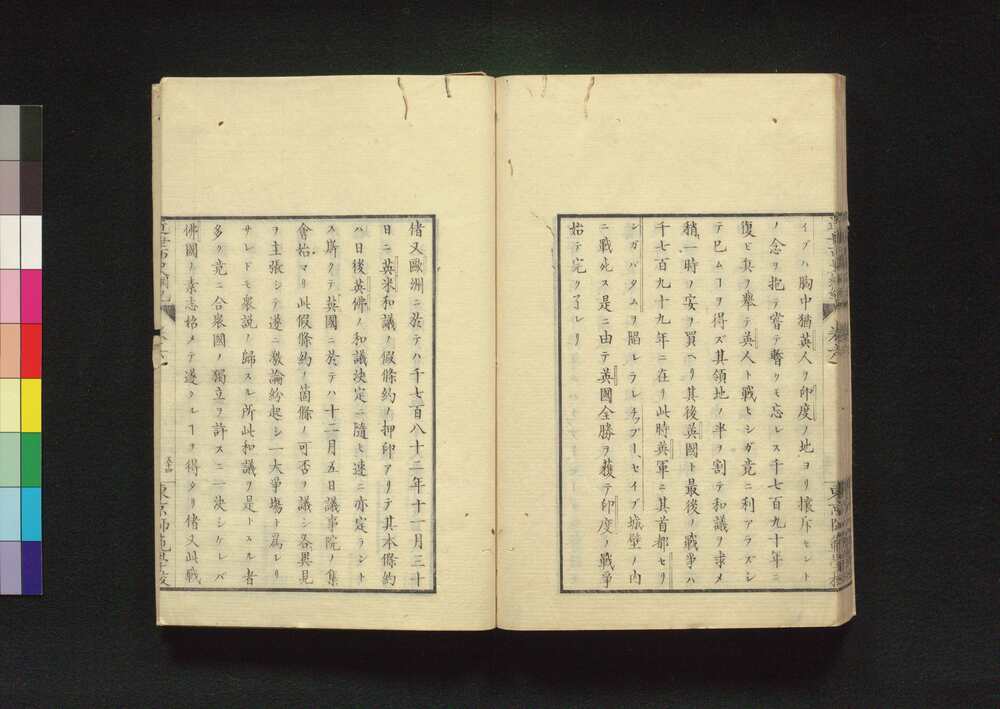 イブハ胸中猶英人ヲ印度ノ地ヨリ攘斥セント
ノ念ヲ抱テ嘗テ暫クモ忘レス千七百九十年ニ
復ヒ兵ヲ擧テ英人ト戰ヒシガ竟ニ利アラズシ
テ已ムヿヲ得ズ其領地ノ半ヲ割テ和議ヲ求メ
稍一時ノ安ヲ買ヘリ其後英國ト最後ノ戰爭ハ
千七百九十九年ニ在リ此時英軍ニ其首都セリ
ンガパタムヲ陷レラレチップー、セイブ城壁ノ内
ニ戰死ス是ニ由テ英國全勝ヲ獲テ印度ノ戰爭
始テ完ク了レリ
偖又歐洲ニ於テハ千七百八十二年十一月三十
日ニ英米和議ノ假條約ノ押印アリテ其本條約
ハ日後英佛ノ和議決定ニ隨ヒ速ニ亦定ラント
ス斯クテ英國ニ於テハ十二月五日議事院ノ集
會始マリ此假條約ノ箇條ノ可否ヲ議シ各異見
ヲ主張シテ遂ニ激論紛起シ一大爭塲ト爲レリ
サレドモ衆説ノ歸スル所此和議ヲ是トスル者
多ク竟ニ合衆國ノ獨立ヲ許スニ一決シケレバ
佛國ノ素志始メテ遂クルヿヲ得タリ偖又此戰
五十四
東京師範學校